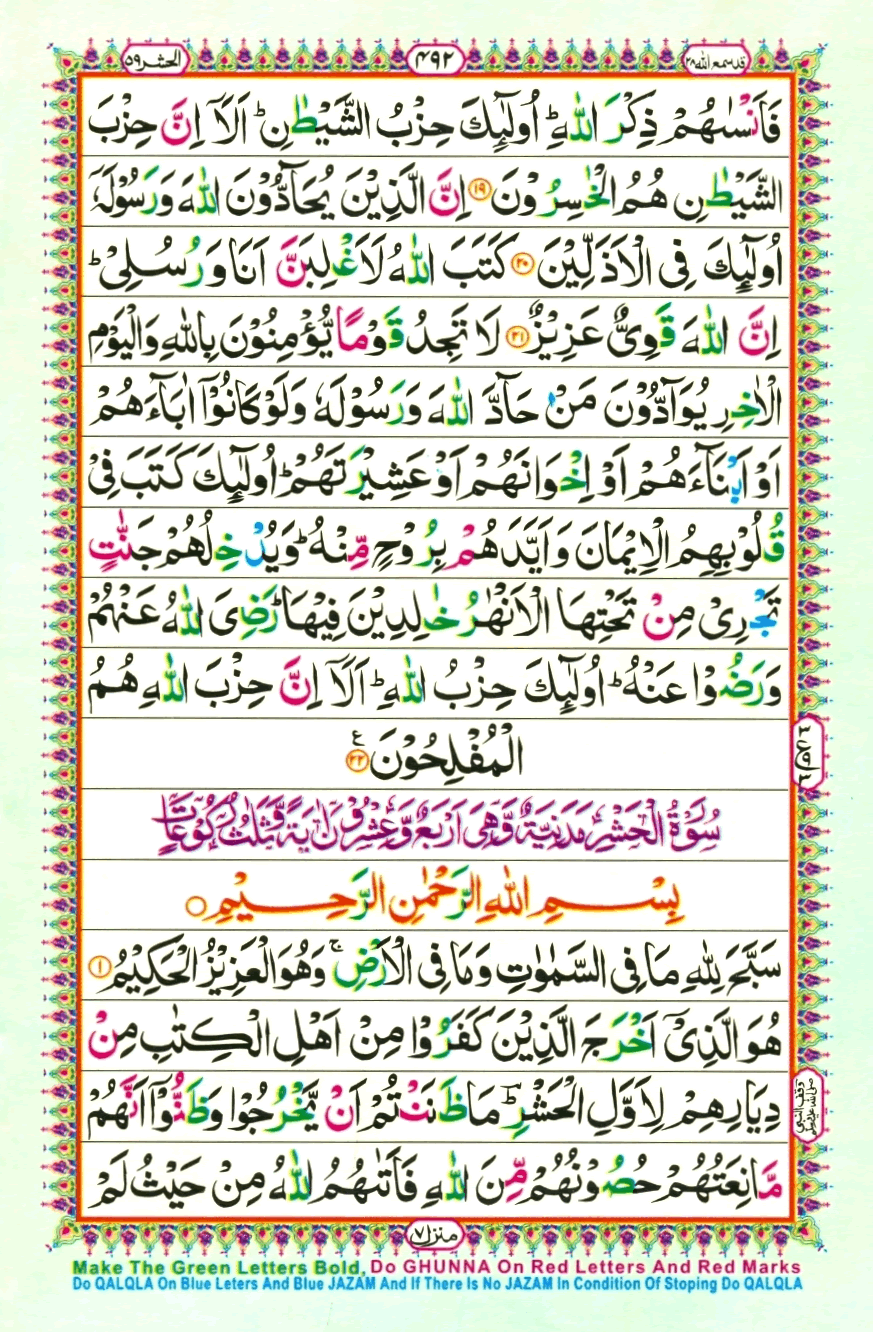 قد سمع الله ۲۸
۴۹۲
الحشر ۵۹
فَاَنْسٰىهُمْ ذِكْرَ اللّٰهِ ؕ اُولٰٓئِكَ حِزْبُ الشَّيْطٰنِ ؕ اَلَاۤ اِنَّ حِزْبَ
الشَّيْطٰنِ هُمُ الْخٰسِرُوْنَ ۱۹ اِنَّ الَّذِيْنَ يُحَآدُّوْنَ اللّٰهَ وَرَسُوْلَهٗۤ
اُولٰٓئِكَ فِى الْاَذَلِّيْنَ ۲۰ كَتَبَ اللّٰهُ لَاَغْلِبَنَّ اَنَا وَرُسُلِىْ ؕ
اِنَّ اللّٰهَ قَوِىٌّ عَزِيْزٌ ۲۱ لَا تَجِدُ قَوْمًا يُّؤْمِنُوْنَ بِاللّٰهِ وَالْيَوْمِ
الْاٰخِرِ يُوَآدُّوْنَ مَنْ حَآدَّ اللّٰهَ وَرَسُوْلَهٗ وَلَوْ كَانُوْۤا اٰبَآءَهُمْ
اَوْ اَبْنَآءَهُمْ اَوْ اِخْوَانَهُمْ اَوْ عَشِيْرَتَهُمْ ؕ اُولٰٓئِكَ كَتَبَ فِىْ
قُلُوْبِهِمُ الْاِيْمَانَ وَاَيَّدَهُمْ بِرُوْحٍ مِّنْهُ ؕ وَيُدْخِلُهُمْ جَنّٰتٍ
تَجْرِىْ مِنْ تَحْتِهَا الْاَنْهٰرُ خٰلِدِيْنَ فِيْهَا ؕ رَضِىَ اللّٰهُ عَنْهُمْ
وَرَضُوْا عَنْهُ ؕ اُولٰٓئِكَ حِزْبُ اللّٰهِ ؕ اَلَاۤ اِنَّ حِزْبَ اللّٰهِ هُمُ
الْمُفْلِحُوْنَ ۲۲ ع
سُوْرَةُ الْحَشْرِ مَدَنِيَّةٌ وَّهِىَ اَرْبَعٌ وَّعِشْرُوْنَ اٰيَةً وَّثَلٰثُ رُكُوْعَاتٍ
بِسْمِ اللّٰهِ الرَّحْمٰنِ الرَّحِيْمِ
سَبَّحَ لِلّٰهِ مَا فِى السَّمٰوٰتِ وَمَا فِى الْاَرْضِ ۚ وَهُوَ الْعَزِيْزُ الْحَكِيْمُ ۱
هُوَ الَّذِىْۤ اَخْرَجَ الَّذِيْنَ كَفَرُوْا مِنْ اَهْلِ الْكِتٰبِ مِنْ
دِيَارِهِمْ لِاَوَّلِ الْحَشْرِ ؕ مَا ظَنَنْتُمْ اَنْ يَّخْرُجُوْا وَظَنُّوْۤا اَنَّهُمْ
مَّانِعَتُهُمْ حُصُوْنُهُمْ مِّنَ اللّٰهِ فَاَتٰىهُمُ اللّٰهُ مِنْ حَيْثُ لَمْ
منزل ۷
Make The Green Letters Bold, Do GHUNNA On Red Letters And Red Marks
Do QALQLA On Blue Leters And Blue JAZAM And If There Is No JAZAM In Condition Of Stoping Do QALQLA